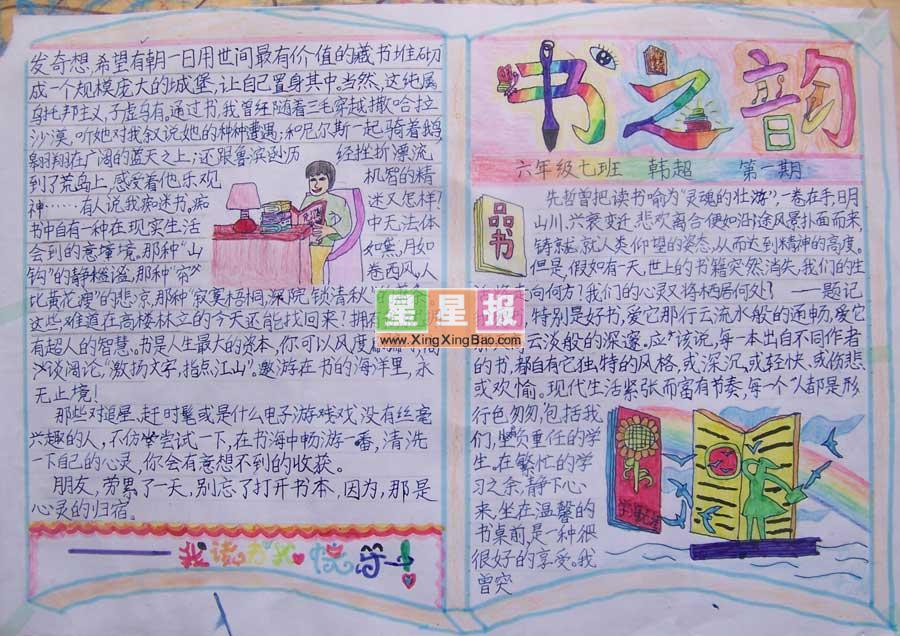 书之韵
六年级七班 韩超 第一期
品书
先哲曾把读书喻为“灵魂的壮游”,一卷在手,明
山川,兴衰变迁,悲欢离合便如沿途风景扑面而来,
铸就人类仰望的姿态,从而达到精神的高度。
但是,假如有一天,世上的书籍突然消失,我们的生
向何方?我们的心灵又将栖居何处? ——题记
特别是好书,爱它那行云流水般的通畅,爱它
云淡般的深邃。应该说,每一本出自不同作者
的书,都自有它独特的风格,或深沉,或轻快、或伤悲
或欢愉。现代生活紧张而富有节奏,每一个人都是形
行色匆匆,包括我
们,坐负重任的学
生。在繁忙的学
习之余,静下心
来,坐在温馨的
书桌前,是一种很
很好的享受。我
曾突
发奇想,希望有朝一日用世间最有价值的藏书堆砌
成一个规模庞大的城堡,让自己置身其中。当然,这纯属
乌托邦主义,子虚乌有。通过书,我曾经随着三毛穿越撒哈拉
沙漠,听她对我叙说她的种种遭遇;和尼尔斯一起骑着鹅
翱翔在广阔的蓝天之上;还跟鲁滨逊历 经挫折漂流
到了荒岛上,感受着他乐观 机智的精
神……有人说我痴迷书。痴 迷又怎样?
书中自有一种在现实生活 中无法体
会到的意境。那种“山 如黛,月如
钩”的静谧,那种“帘 卷西风,人
比黄花瘦”的悲凉,那种“寂寞梧桐深院,锁清秋”
这些难道在高楼林立的今天还能找回来?拥
有超人的智慧。书是人生最大的资本,你可以风度
谈阔论,“激扬文字,指点江山”。遨游在书的海洋里,永
无止境!
那些对追星、赶时髦或是什么电子游戏没有丝毫
兴趣的人,不仿尝试一下,在书海中畅游一番,清洗
一下自己的心灵,你会有意想不到的收获。
朋友,劳累了一天,别忘了打开书本,因为,那是
心灵的归宿。
我读书我快乐
星星报
www.XingXingBao.com